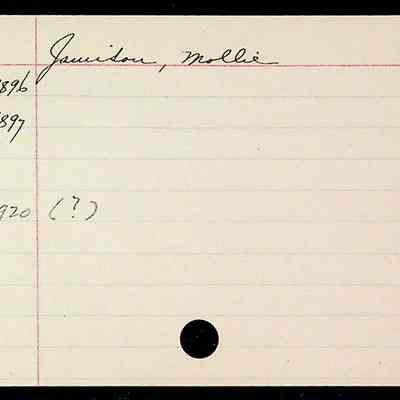 Jamison, Mollie
896
897
920 (?)